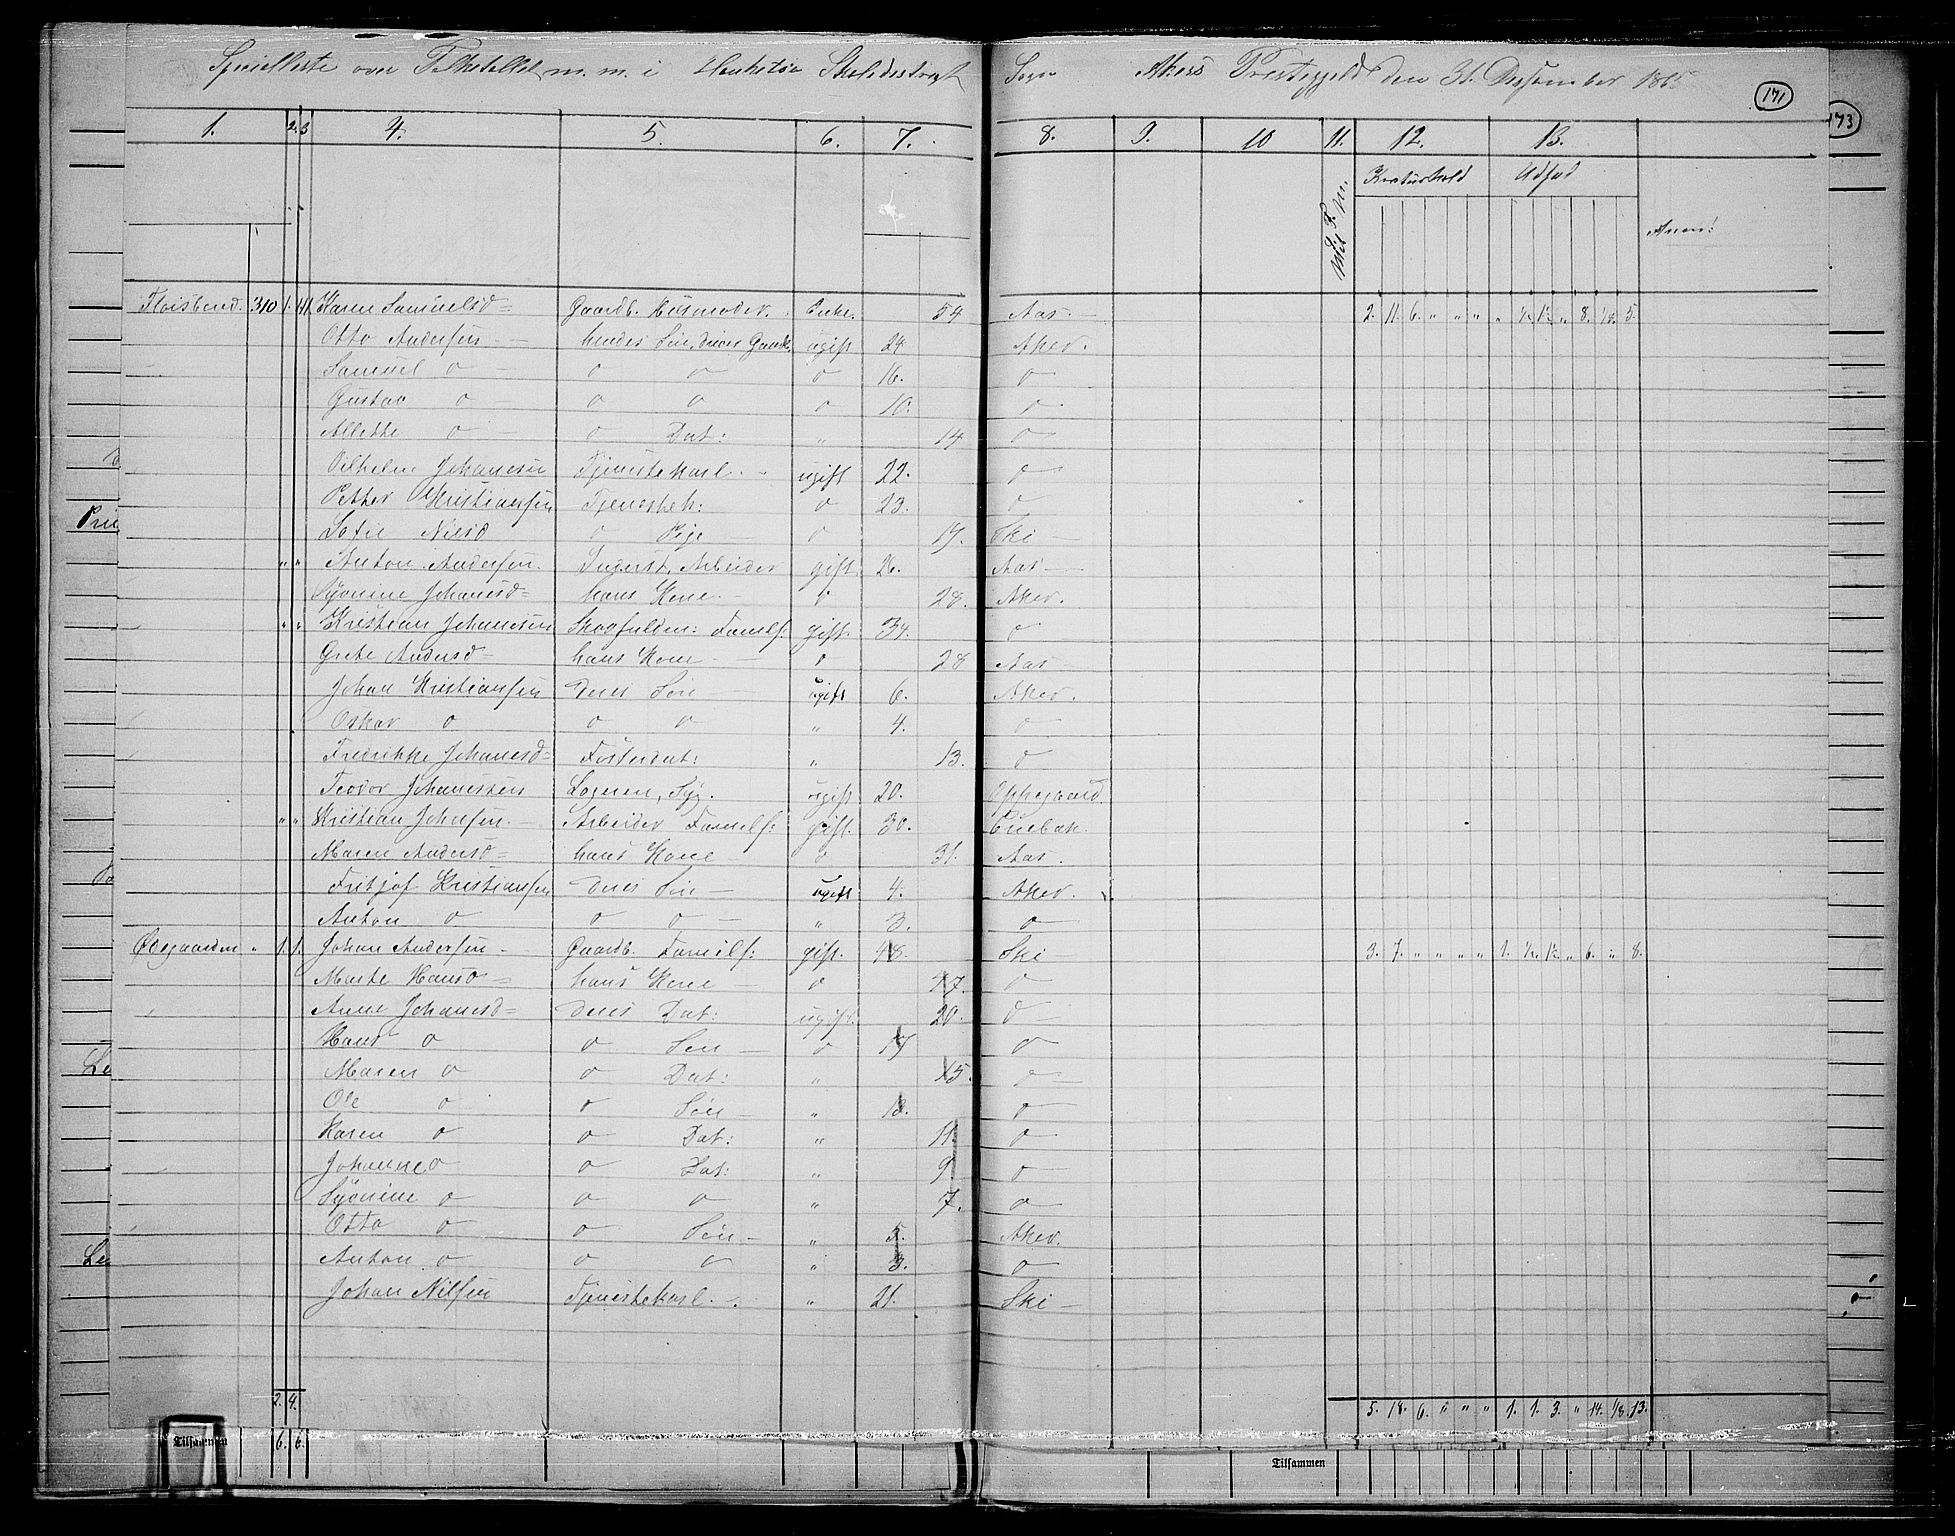 Specialliste over Folketallet m. m. i Skoledistrigt Sogn Akers Prestegjeld den 31. Desember 1865
171
173
1. 2. 3 4. 5. 6. 7. 8. 9. 10 11. 12. 13.
Kreaturhold Udsæd
Anm:
310 1. Karen Samuelsd= Gaardb. Husmoder. Enke. 54 Aas. 2. 11. 6. " " " " 1/2 1 1/2 " 8. 1/8 5.
Otto Andersen hendes Søn, driver Gaardb. ugift 24 Aker.
Samuel o o o o 16. o
Gustav o o o o 10. o
Allette o o Dat: " 14 o
Vilhelm Johansen Tjenestekarl. ugift 22. o
Petter Kristiansen Tjenestek: o 23. o
Sofie Nilsd o Pige o 17. Ski
" " Anton Andersen. Inderst, Arbeider gift. 26. Aas
Syverine Johanesd= hans Kone o 28. Aker.
" " Kristian Johansen Familf: gift. 34. o
Grete Andersd= hans Kone o 28 Aas
Johan Kristiansen deres Søn ugift 6. Aker.
Oskar o o o " 4. o
Fredrikke Johanesd= Fosterdat: " 13. o
Teodor Johanessen Logeren, ugift 20. Oppegaard.
" " Kristian Johnsen. Arbeider Familf: gift. 30. Enebak.
Maren Andersd= hans Kone o 31. Aas.
Fritjof Kristiansen deres Søn ugift 4. Aker.
Anton o o o " 3. o
Ødegaarden " 1. 1. Johan Andersen Gaardb. Familf: gift. 48. Ski 3. 7. " " " " 1. 1/2 1 1/2 " 6. " 8.
Marte Hansd= hans Kone o 47. o
Anne Johanesd= deres Dat: ugift. 20. o
Hans o o Søn o 17 o
Maren o o Dat: " 15. o
Ole o o Søn " 13. o
Karen o o Dat: " 11. o
Johanne o o Dat: " 9. o
Syverine o o o " 7. o
Otto o o Søn " 5. Aker.
Anton o o o " 3. o
Johan Nilsen Tjenestekarl. " 21. Ski
2. 4. 5. 18. 6. " " " 1. 1. 3. " 14. 1/8. 13.
Tilsammen 6. 6. Tilsammen